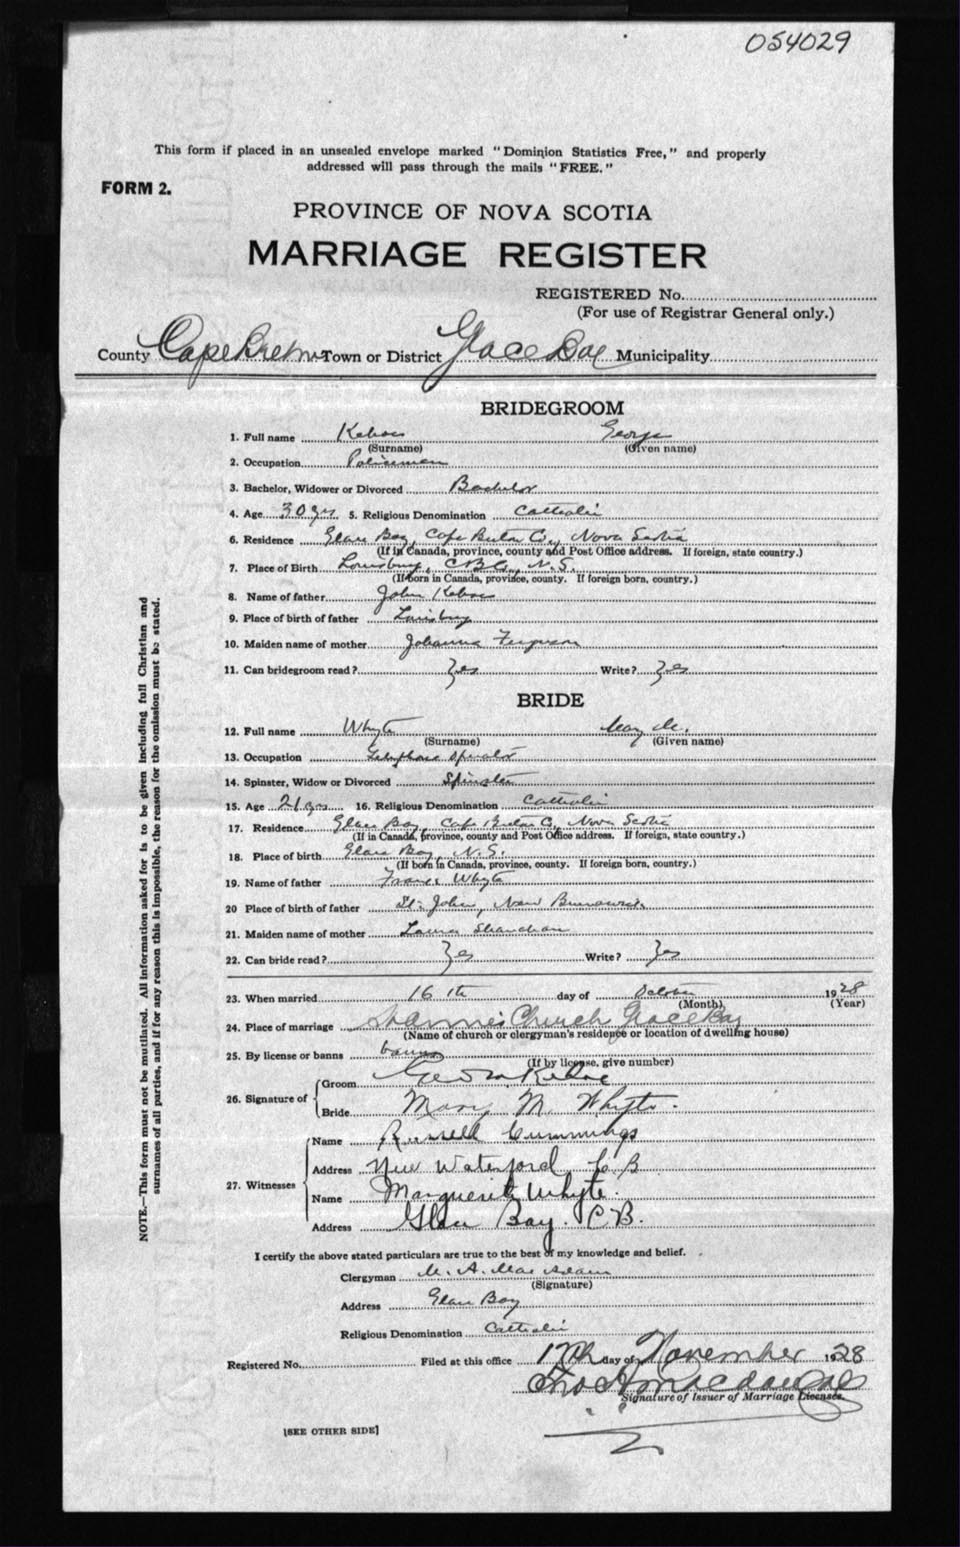 054029
This form if placed in an unsealed envelope marked "Dominion Statistics Free," and properly
addressed will pass through the mails "FREE."
FORM 2.
PROVINCE OF NOVA SCOTIA
MARRIAGE REGISTER
REGISTERED No.
(For use of Registrar General only.)
County Cape Breton Town or District Glace Bay Municipality
BRIDEGROOM
1. Full name Kehoe George
(Surname) (Given name)
2. Occupation Policeman
3. Bachelor, Widower or Divorced Bachelor
4. Age 30 yrs 5. Religious Denomination Catholic
6. Residence Glace Bay, Cape Breton Co., Nova Scotia
(If in Canada, province, county and Post Office address. If foreign, state country.)
7. Place of Birth Louisburg, C.B.Co., N.S.
(If born in Canada, province, county. If foreign born, country.)
8. Name of father John Kehoe
9. Place of birth of father Louisburg
10. Maiden name of mother Johanna Ferguson
11. Can bridegroom read? Yes Write? Yes
BRIDE
12. Full name Whyte Mary M.
(Surname) (Given name)
13. Occupation Telephone Operator
14. Spinster, Widow or Divorced Spinster
15. Age 21 yrs 16. Religious Denomination Catholic
17. Residence Glace Bay, Cape Breton Co., Nova Scotia
(If in Canada, province, county and Post Office address. If foreign, state country.)
18. Place of birth Glace Bay, N.S.
(If born in Canada, province, county. If foreign born, country.)
19. Name of father Whyte
20 Place of birth of father St. John, New Brunswick
21. Maiden name of mother Laura
22. Can bride read? Yes Write? Yes
23. When married 16th day of October 1928
(Month) (Year)
24. Place of marriage St Anne's Church Glace Bay
(Name of church or clergyman's residence or location of dwelling house)
25. By license or banns banns
(If by license, give number)
26. Signature of Groom Geo. Kehoe
Bride Mary M. Whyte.
27. Witnesses Name Russell Cummings
Address New Waterford C B
Name Marguerite Whyte.
Address Glace Bay. C B.
I certify the above stated particulars are true to the best of my knowledge and belief.
Clergyman M. A. MacAdam
(Signature)
Address Glace Bay
Religious Denomination Catholic
Registered No. Filed at this office 17th day of November 1928
MacDougall
Signature of Issuer of Marriage Licenses.
[SEE OTHER SIDE]
NOTE.—This form must not be mutilated. All information asked for is to be given including full Christian and
surnames of all parties, and if for any reason this is impossible, the reason for the omission must be stated.